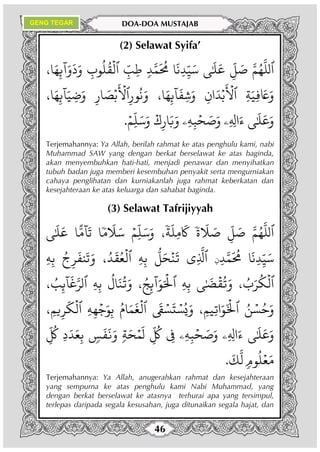 GENG TEGAR
DOA-DOA MUSTAJAB
(2) Selawat Syifa’
ٱللَّهُمَّ صَلِّ عَلَىٰ سَيِّدِنَا مُحَمَّدٍ طِبِّ ٱلْقُلُوبِ وَدَوَآئِهَا،
وَعَافِيَةِ ٱلْأَبْدَانِ وَشِفَآئِهَا، وَنُورِ ٱلْأَبْصَارِ وَضِيَآئِهَا،
وَعَلَىٰ ءَالِهِۦ وَصَحْبِهِۦ وَبَارِكْ وَسَلِّمْ.
Terjemahannya: Ya Allah, berilah rahmat ke atas penghulu kami, nabi
Muhammad SAW yang dengan berkat berselawat ke atas baginda,
akan menyembuhkan hati-hati, menjadi penawar dan menyihatkan
tubuh badan juga memberi kesembuhan penyakit serta mengurniakan
cahaya penglihatan dan kurniakanlah juga rahmat keberkatan dan
kesejahteraan ke atas keluarga dan sahabat baginda.
(3) Selawat Tafrijiyyah
ٱللَّهُمَّ صَلِّ صَلَاةً كَامِلَةً، وَسَلِّمْ سَلَامًا تَآمًّا عَلَى
سَيِّدِنَا مُحَمَّدِنِ ٱلَّذِي تَنْحَلُّ بِهِ ٱلْعُقَدُ، وَتَنْفَرِجُ بِهِ
ٱلْكُرَبُ، وَتُقْضَىٰ بِهِ ٱلْحَوَآئِجُ، وَتُنَالُ بِهِ ٱلرَّغَآئِبُ،
وَحُسْنُ ٱلْخَوَاتِيمِ، وَيُسْتَسْقَى ٱلْغَمَامُ بِوَجْهِهِ ٱلْكَرِيمِ،
وَعَلَىٰ ءَالِهِۦ وَصَحْبِهِۦ فِي كُلِّ لَمْحَةٍ وَنَفَسٍ بِعَدَدِ كُلِّ
مَعْلُومٍ لَّكَ.
Terjemahannya: Ya Allah, anugerahkan rahmat dan kesejahteraan
yang sempurna ke atas penghulu kami Nabi Muhammad, yang
dengan berkat berselawat ke atasnya terhurai apa yang tersimpul,
terlepas daripada segala kesusahan, juga ditunaikan segala hajat, dan
46